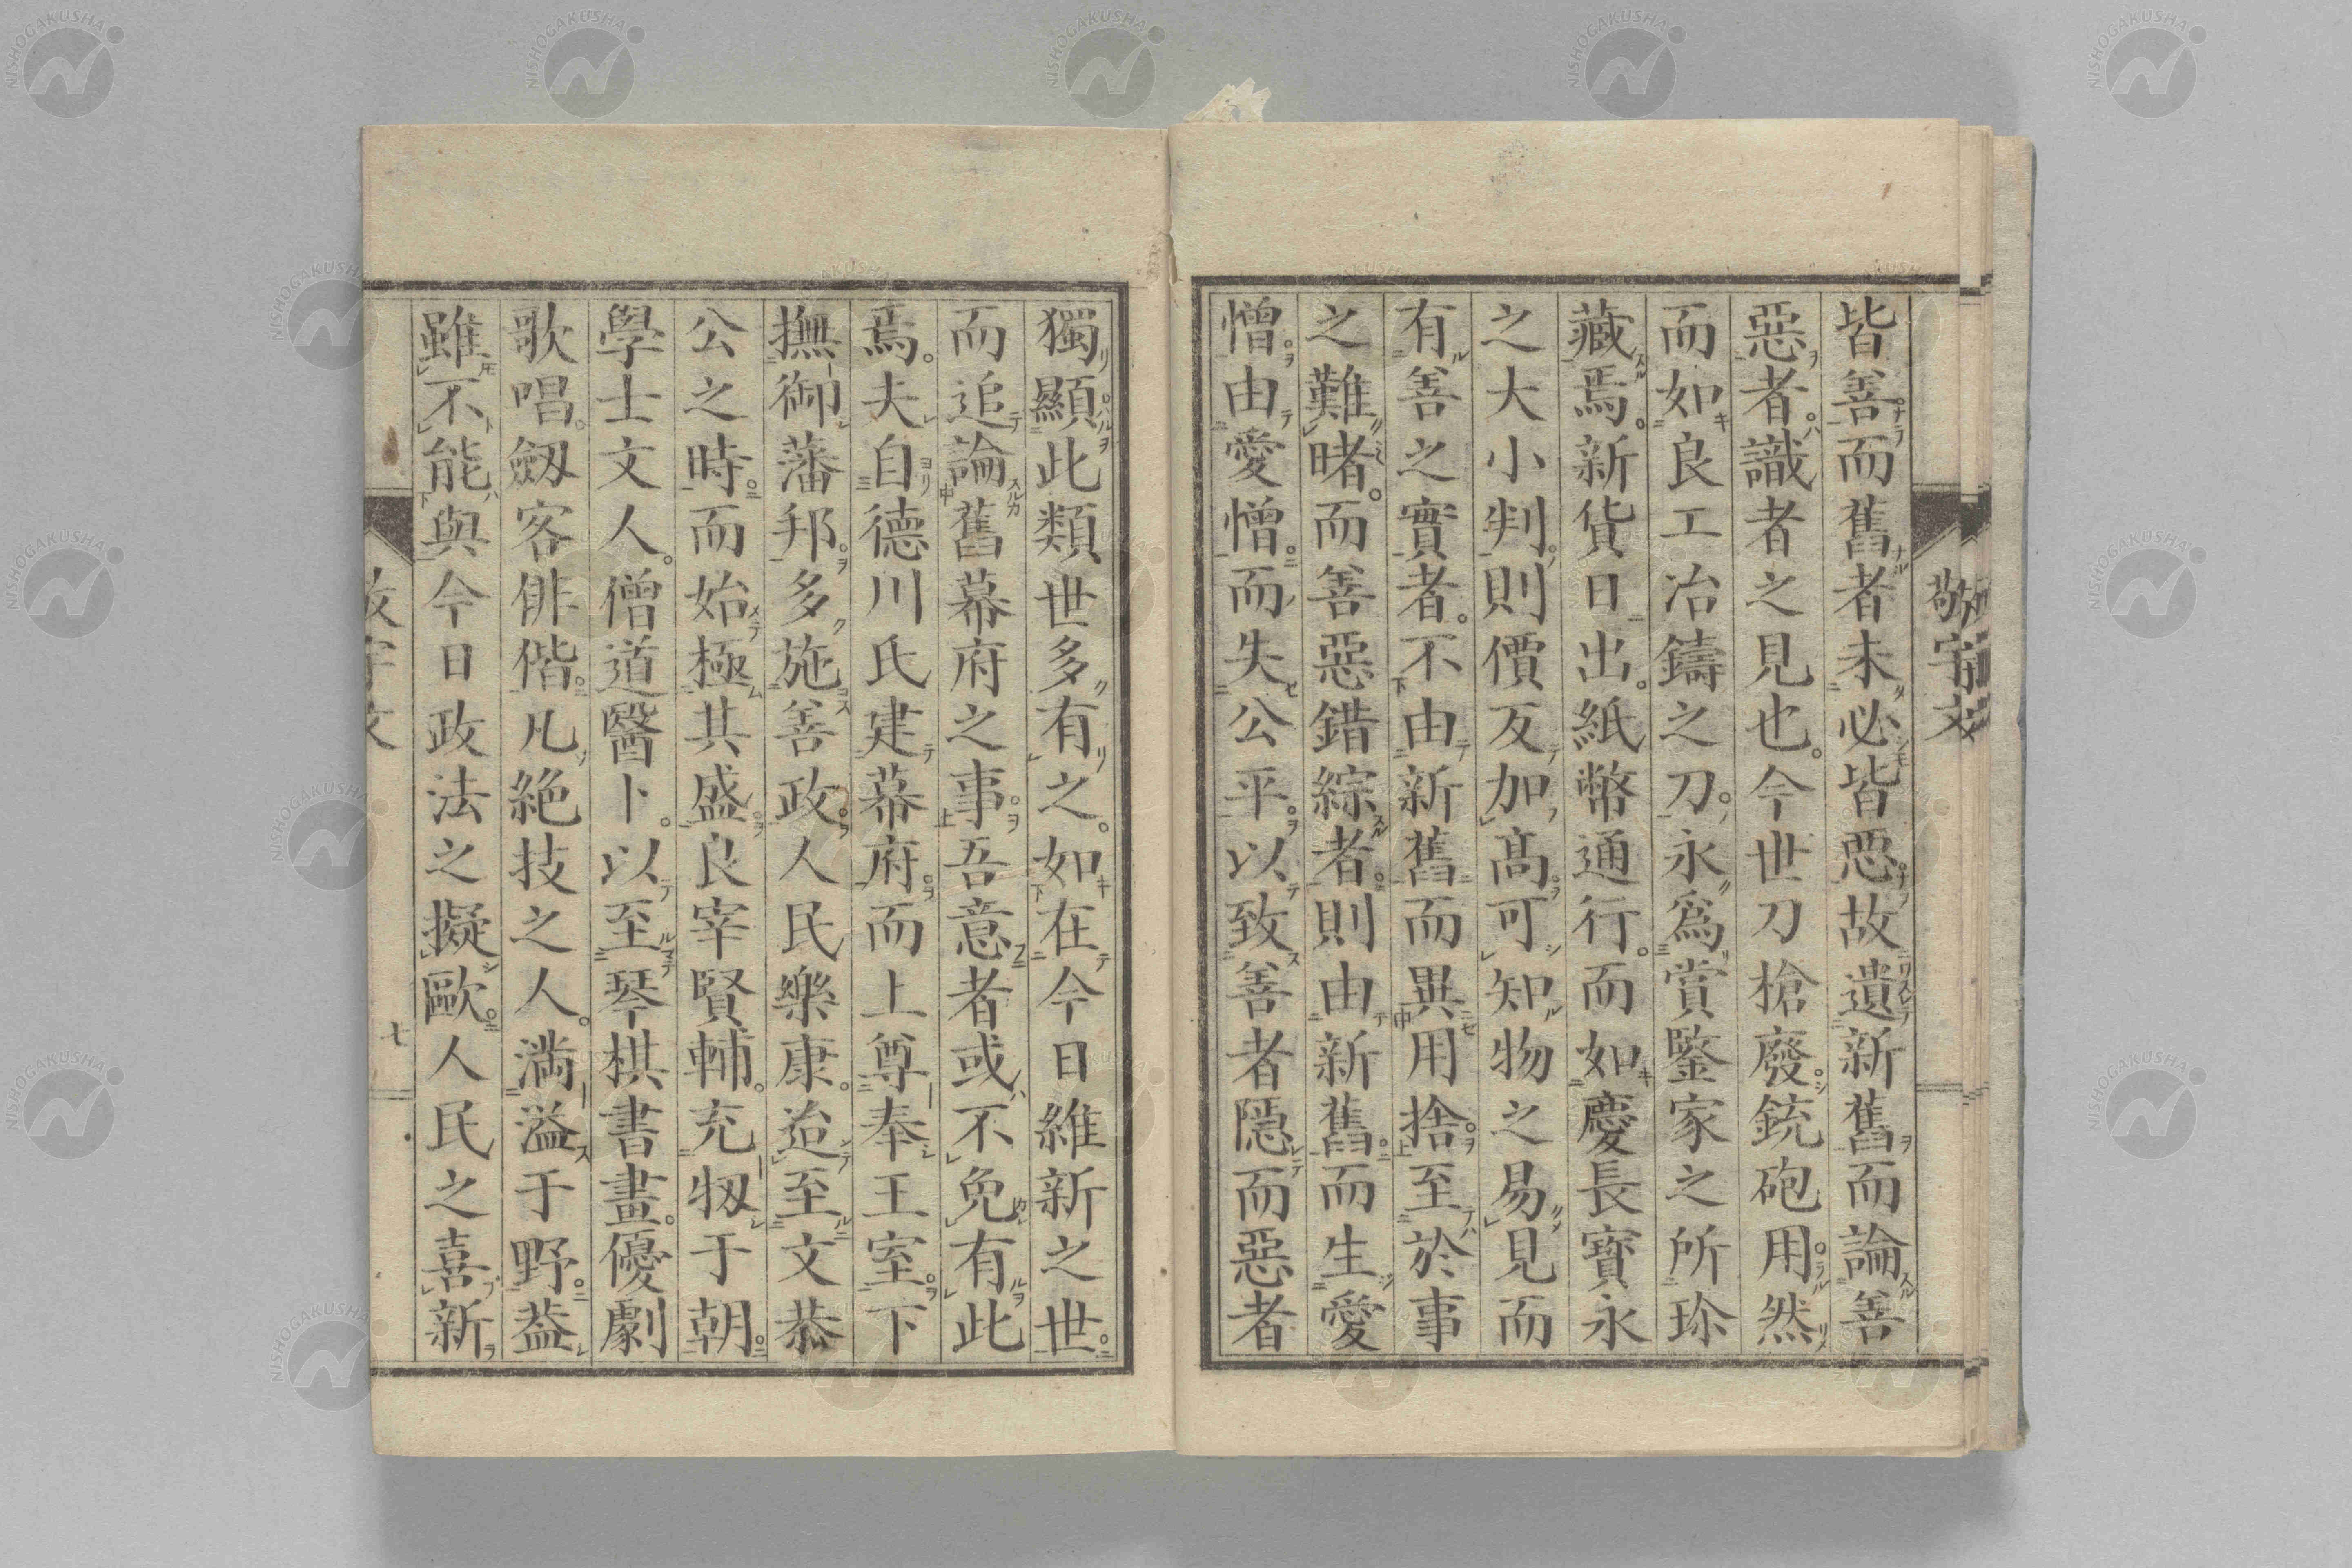 皆善而舊者未必皆惡故遺新舊而論善
惡者識者之見也。今世刀槍廢銃砲用然
而如良工冶鑄之刀永爲賞鑒家之所珍
藏焉。新貨日出。紙幣通行。而如慶長寳永
之大小判則價反加髙可知物之易見而
有善之實者。不由新舊而異用捨至於事
之難睹。而善惡錯綜者則由新舊而生愛
憎。由愛憎而失公平以致善者隱而惡者
獨顯此類世多有之。如在今日維新之世
而追論舊幕府之事吾意者或不免有此
焉。夫自德川氏建幕府而上尊奉王室下
撫御藩邦多施善政人民樂康。迨至文恭
公之時而始極其盛良宰賢輔。充牣于朝
學士文人。僧道醫卜。以至琴棋書畫。優劇
歌唱。劔客俳偕凡絕技之人。滿溢于野葢
雖不能與今日政法之擬歐人民之喜新
敬宇文
七
NISHOGAKUSHA